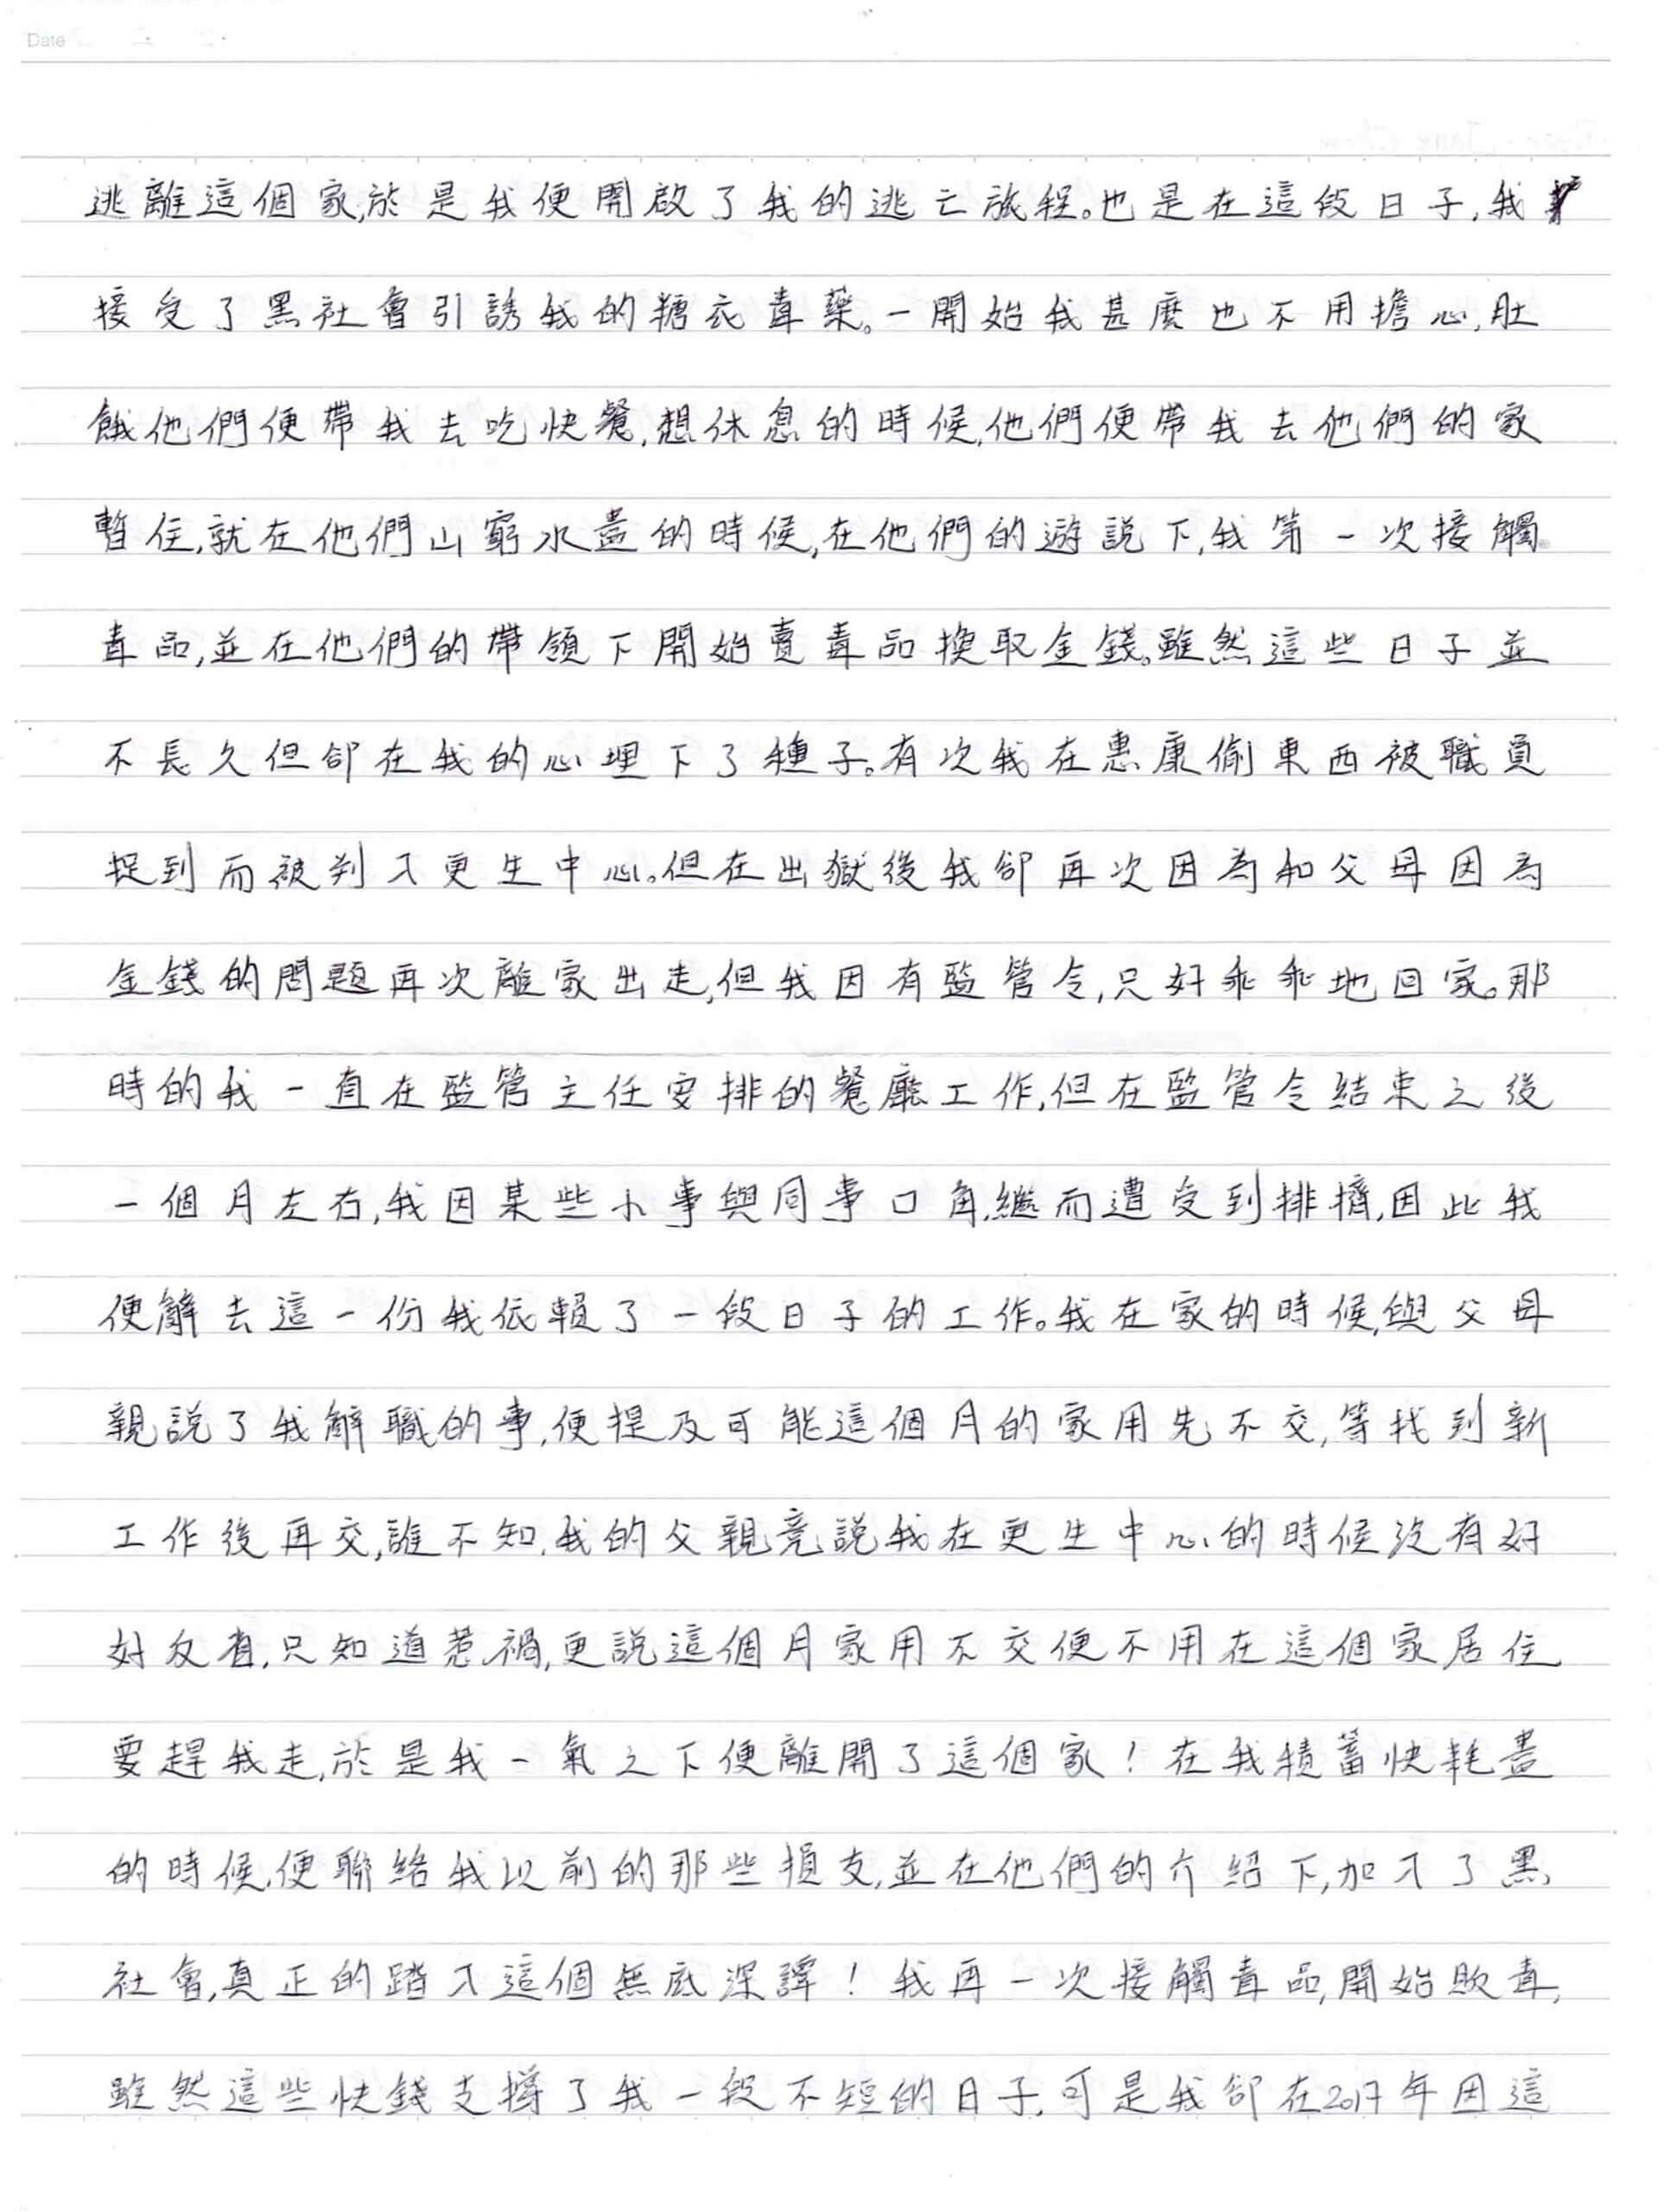 Date
逃離這個家,於是我便開啟了我的逃亡旅程。也是在這段日子,我
接受了黑社會引誘我的糖衣毒藥。一開始我甚麼也不用擔心,肚
餓他們便帶我去吃快餐,想休息的時候,他們便帶我去他們的家
暫住,就在他們山窮水盡的時候,在他們的遊說下,我第一次接觸
毒品,並在他們的帶領下開始賣毒品換取金錢。雖然這些日子並
不長久但卻在我的心埋下了種子。有次我在惠康偷東西被職員
捉到而被判入更生中心。但在出獄後我卻再次因為和父母因為
金錢的問題再次離家出走,但我因有監管令,只好乖乖地回家。那
時的我一直在監管主任安排的餐廳工作,但在監管令結束之後
一個月左右,我因某些小事與同事口角,繼而遭受到排擠,因此我
便解去這一份我依賴了一段日子的工作。我在家的時候,與父母
親說了我解職的事,便提及可能這個月的家用先不交,等找到新
工作後再交,誰不知,我的父親竟說我在更生中心的時候沒有好
好反省,只知道惹禍,更說這個月家用不交便不用在這個家居住
要趕我走,於是我一氣之下便離開了這個家!在我積蓄快耗盡
的時候,便聯絡我以前的那些損友,並在他們的介紹下,加入了黑
社會,真正的踏入這個無底深譚!我再一次接觸毒品,開始敗毒,
雖然這些快錢支撐了我一段不短的日子,可是我卻在2017年因這